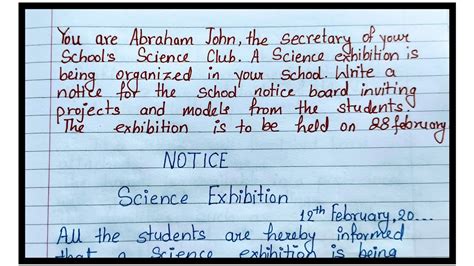 You are Abraham John, the secretary of your
School's Science Club. A Science exhibition is
being organized in your school. Write a
notice for the school notice board inviting
projects and models from the students.
The exhibition is to be held on 28 february
NOTICE
Science Exhibition
12th February, 20...
All the students are hereby informed
that a Science exhibition is being